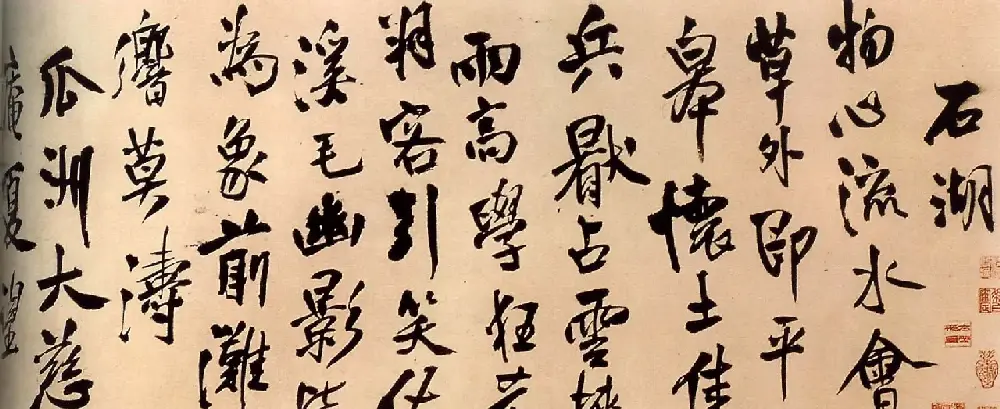 石湖
物心流水會
草外即平
皋懷土佳
兵厭占雲
雨高學狂
客引笑
溪毛幽影
為象前灘
響莫濤
瓜洲大慈